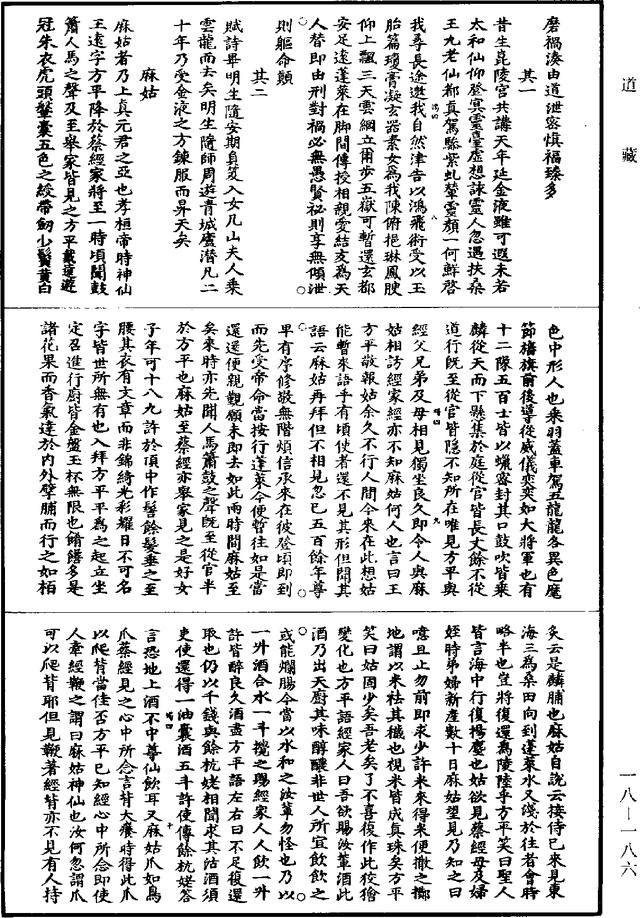 道藏
磨禍湊由道泄密慎福臻多
其一
昔生崑陵宮共講天年延金液雖可遐未若
太和仙仰登冥靈臺虛想詠靈人忽遇扶桑
王九老仙都真駕驂紫虬輦靈顏一何鮮啓
我尋長途邀我自然津告以鴻飛術受以玉
胎篇瓊膏凝玄器素女為我陳俯挹琳鳳腴
仰上飄三天雲綱立甭步五嶽可暫還玄都
安足遠蓬萊在脚間傳授相親愛結友為天
人替即由刑對禍必無愚賢祕則享無傾泄
則軀命顛
其二
賦詩畢明生隨安期負笈入女几山夫人乘
雲龍而去矣明生隨師周遊青城廬潛凡二
十年乃受金液之方鍊服而昇天矣
麻姑
麻姑者乃上真元君之亞也孝桓帝時神仙
王遠字方平降於蔡經家將至一時頃聞鼓
簫人馬之聲及至舉家皆見之方平戴遠遊
冠朱衣虎頭鞶囊五色之綬帶劒少鬚黃白
色中形人也乘羽蓋車駕五龍龍各異色麾
節旛旗前後導從威儀奕奕如大將軍也有
十二隊五百士皆以蠟密封其口鼓吹皆乘
麟從天而下懸集於庭從官皆長丈餘不從
道行既至從官皆隱不知所在唯見方平與
經父兄弟及母相見獨坐良久即令人與麻
姑相訪經家經亦不知麻姑何人也言曰王
方平敬報姑余久不行人間今來在此想姑
能暫來語乎有頃使者還不見其形但聞其
語云麻姑再拜但不相見忽已五百餘年尊
卑有序修敬無階煩信承來在彼登頃即到
而先受帝命當按行蓬萊今便暫往如是當
還還便親覲願未即去如此兩時間麻姑至
矣來時亦先聞人馬簫鼓之聲既至從官半
於方平也麻姑至蔡經亦舉家見之是好女
子年可十八九許於頂中作髻餘髮垂之至
腰其衣有文章而非錦綺光彩耀日不可名
字皆世所無有也入拜方平平為之起立坐
定召進行廚皆金盤玉杯無限也餚饍多是
諸花果而香氣達於內外擘脯而行之如栢
炙云是麟脯也麻姑自說云接待已來見東
海三為桑田向到蓬萊水又淺於往者會時
略半也豈將復還為陵陸乎方平笑曰聖人
皆言海中行復揚塵也姑欲見蔡經母及婦
姪時弟婦新產數十日麻姑望見乃知之曰
噫且止勿前即求少許米來得米便撒之擲
地謂以米祛其穢也視米皆成真珠矣方平
笑曰姑固少矣吾老矣了不喜復作此狡獪
變化也方平語經家人曰吾欲賜汝輩酒此
酒乃出天廚其味醇醲非世人所宜飲飲之
或能爛腸今當以水和之汝輩勿怪也乃以
一升酒合水一斗攪之賜經家人人飲一升
許皆醉良久酒盡方平語左右曰不足復還
取也仍以千錢與餘杭姥相聞求其沽酒須
臾使還得一油囊酒五斗許使傳餘杭姥答
言恐地上酒不中尊仙飲耳又麻姑爪如鳥
爪蔡經見之心中所念言背大癢時得此爪
以爬背當佳否方平已知經心中所念即使
人牽經鞭之謂曰麻姑神仙也汝何忽謂爪
可以爬背耶但見鞭著經背亦不見有人持
一八—一八六